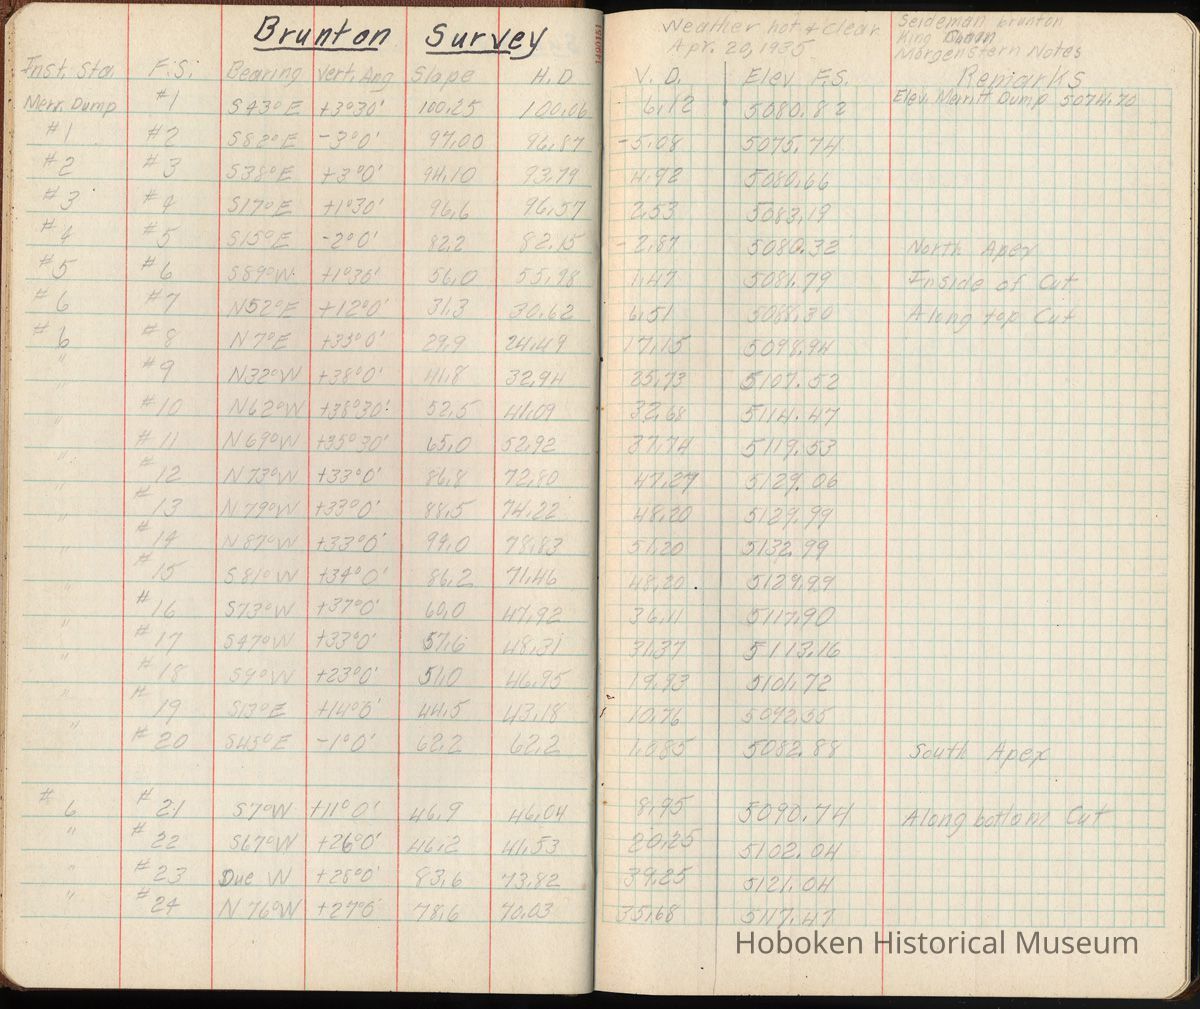 Brunton Survey
Weather hot & clear
Apr. 20, 1935
Seideman brunton
King Chain
Morgenstern Notes
Inst. Sta F.S. Bearing Vert. Ang Slape H.D. V.D. Elev F.S. Remarks
Merr. Dump #1 S43°E +3°30' 100.25 100.06 6.12 5080.82 Elev. Merritt Dump 5074.70
#1 #2 S82°E -3°0' 97.00 96.87 -5.08 5075.74
#2 #3 S38°E +3°0' 94.10 93.79 4.92 5080.66
#3 #4 S17°E +1°30' 96.6 96.57 2.53 5083.19
#4 #5 S15°E -2°0' 82.2 82.15 -2.87 5080.32 North Apex
#5 #6 S89°W +1°30' 56.0 55.98 1.47 5081.79 Inside of Cut
#6 #7 N52°E +12°0' 31.3 30.62 6.51 5088.30 Along top Cut
#6 #8 N7°E +35°0' 29.9 24.49 17.15 5098.94
" #9 N32°W +38°0' 41.8 32.94 25.73 5107.52
" #10 N62°W +38°30' 52.5 41.09 32.68 5114.47
" #11 N69°W +35°30' 65.0 52.92 37.74 5119.53
" #12 N73°W +33°0' 86.8 72.80 47.27 5129.06
" #13 N79°W +33°0' 88.5 74.22 48.20 5129.99
" #14 N87°W +33°0' 94.0 78.83 51.20 5132.99
" #15 S81°W +34°0' 86.2 71.46 48.20 5129.99
" #16 S73°W +37°0' 60.0 47.92 36.11 5117.90
" #17 S47°W +33°0' 57.6 48.31 31.37 5113.16
" #18 S9°W +23°0' 51.0 46.95 19.93 5101.72
" #19 S13°E +14°0' 44.5 43.18 10.76 5092.55
" #20 S45°E -1°0' 62.2 62.2 1.085 5082.88 South Apex
#6 #21 S7°W +11°0' 46.9 46.04 8.95 5090.74 Along bottom Cut
" #22 S67°W +26°0' 46.2 41.53 20.25 5102.04
" #23 Due W +28°0' 83.6 73.82 39.25 5121.04
" #24 N76°W +27°0' 78.6 70.03 35.68 5117.47
Hoboken Historical Museum